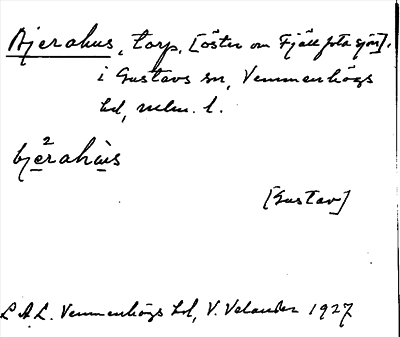 Bjerahus, torp. [öster om Fjällfota sjön].
i Gustavs sn, Vemmenhögs
hd, mlm. l.
bje²rahùs
[Gustav]
L.A.L. Vemmenhögs hd, V. Velander 1927